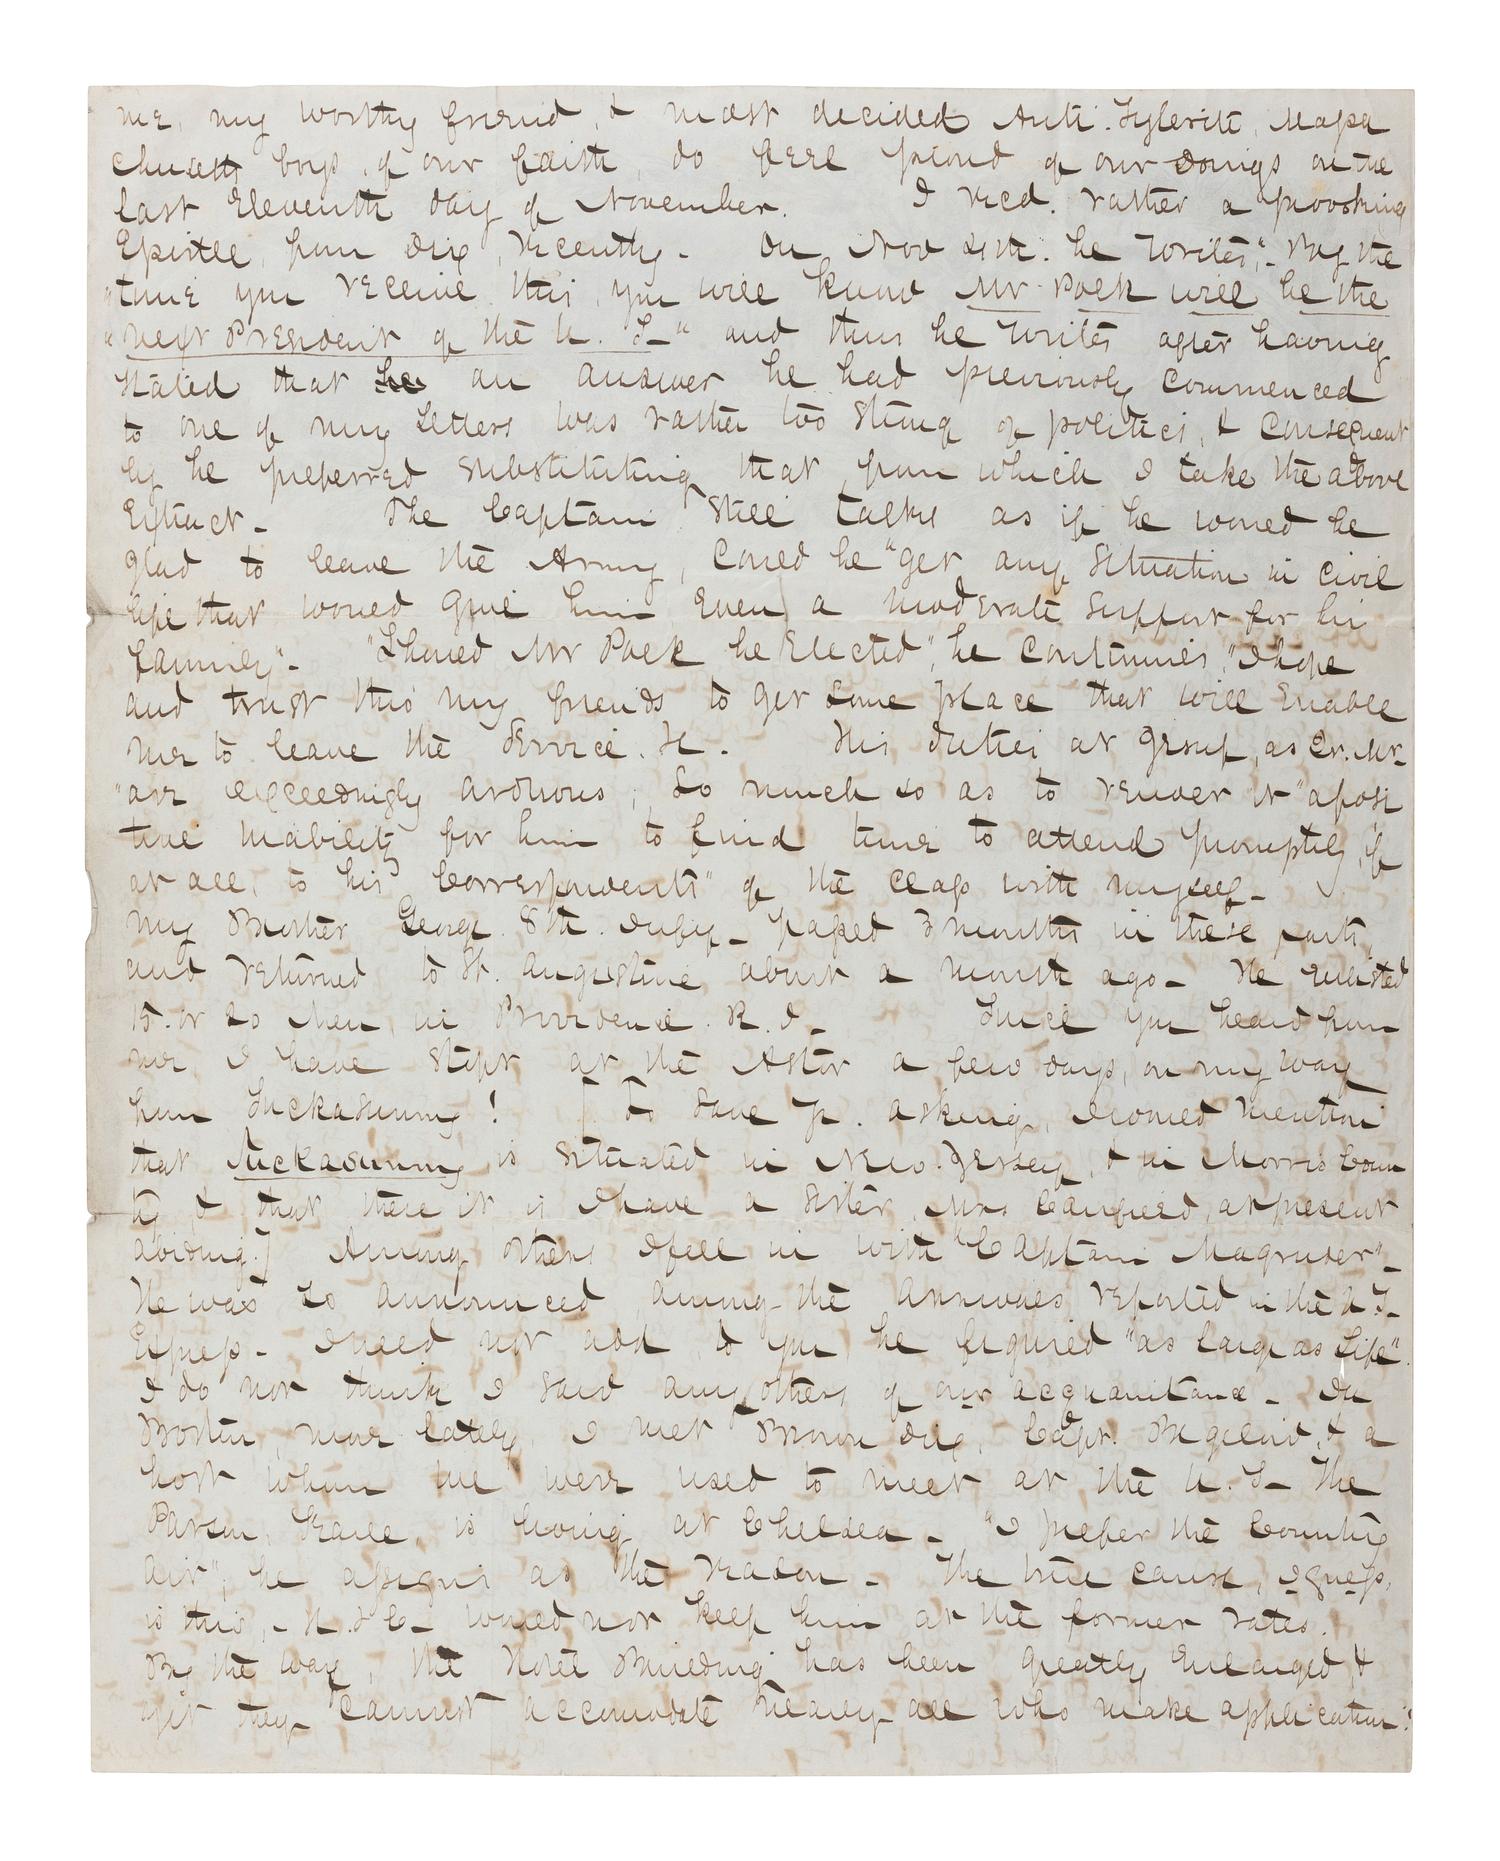 me, my worthy friend, & most decided Anti-Tylerite, Massa
chusetts boys, of our faith, do feel proud of our doings on the
last Eleventh day of November. I recd. rather a provoking
Epistle, from Dix, recently. On Nov he writes, "By the
"time you receive this, you will know Mr Polk will be the
"next President of the U. S." and thus he writes after having
stated that he an answer he had previously commenced
to one of my letters was rather too strong of politics, & consequent
ly he preferred substituting that from which I take the above
Extract. The Captain still talks as if he would be
glad to leave the Army, could he "get any situation in civil
life that would give him even a moderate support for his
family". "Should Mr Polk be elected", he continues, "I hope
and trust thro' my friends to get some place that will enable
me to leave the service. &c. His duties at as Qr. Mr.
"are exceedingly arduous, so much so as to render it "a posi
tive inability for him to find time to attend promptly, if
at all, to his "correspondents" of the class with myself.
my Brother George 8th. Infy. passed 3 months in these parts,
and returned to St. Augustine about a month ago. He enlisted
15. or 20 men, in Providence. R. I. Since you heard from
me I have stopt at the Astor a few days, on my way
from Suckasunny! [To save yr. asking, I would mention
that Suckasunny is situated in New. Jersey, & in Morris Coun
ty & that there it is I have a sister, Mrs Canfield, at present
abiding.] Among others I fell in with "Captain Magruder".
He was so announced among the Arrivals reported in the N. Y.
Express. I need not add, to you, he figured "as large as life".
I do not think I said any others of our acquaintance. In
Boston, more lately, I met Brown Dix, Capt. & a
host whom we were used to meet at the U. S. The
Parson, is living at Chelsea. "I prefer the Country
air", he assigns as the reason. The true cause, I guess,
is this, - H. & C. would not keep him at the former rates.
By the way, the Hotel Building has been greatly enlarged &
yet they cannot accomodate nearly all who make application.